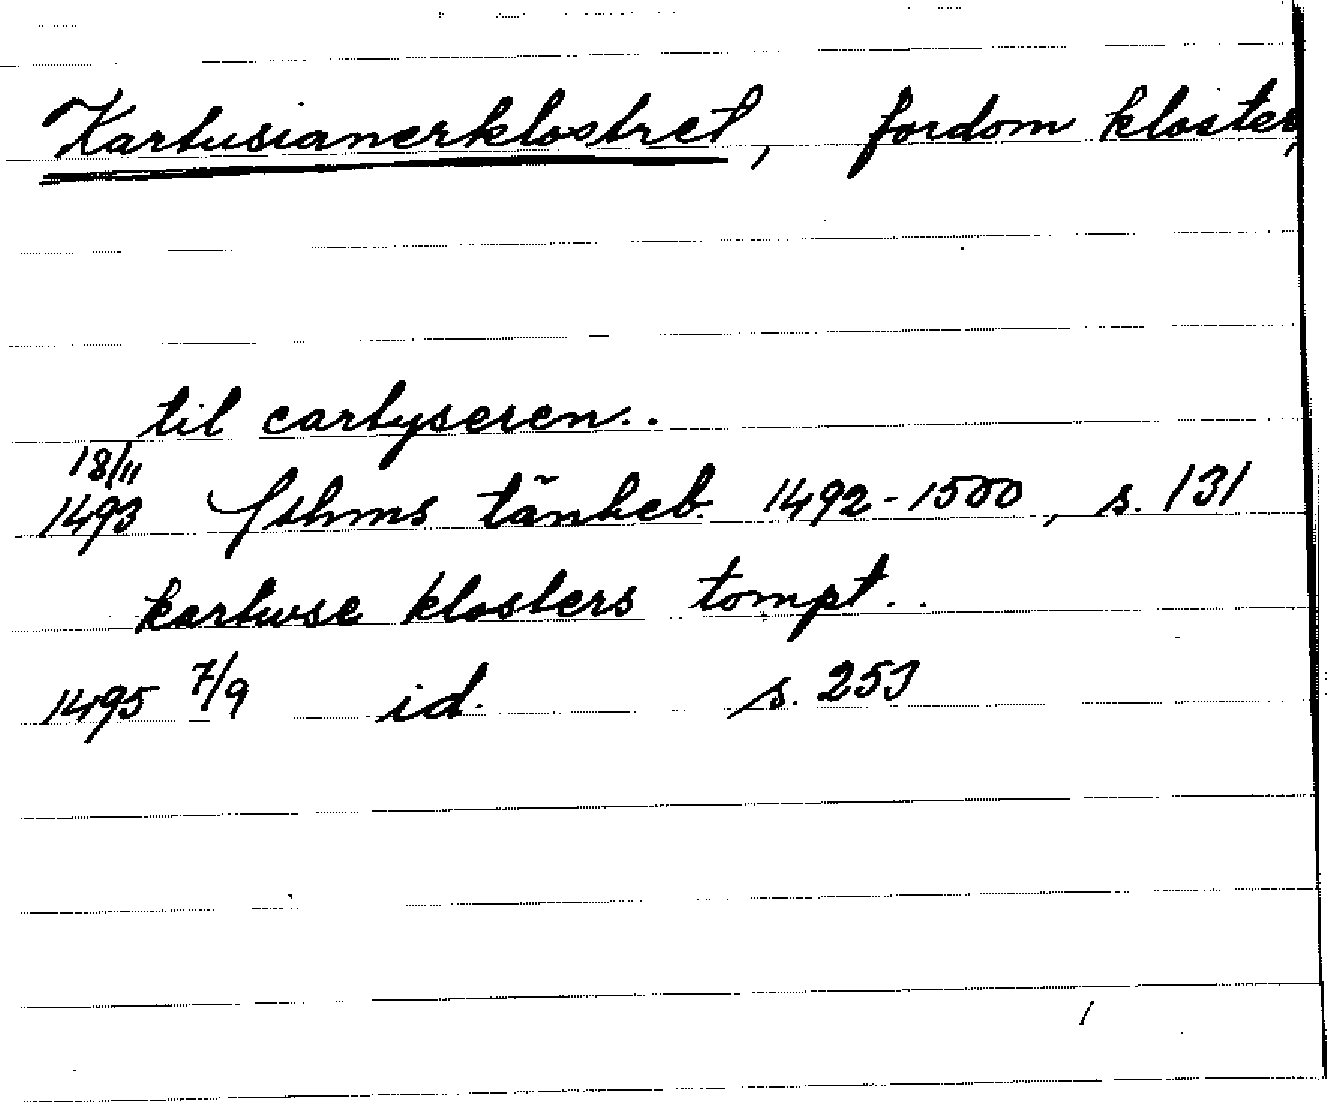 Kartusianerklostret, fordom kloster,
til cartyseren..
18/11
1493 Sthms tänkeb. 1492-1500, s. 131
kartuse klosters tompt..
1495 7/9 id. s. 253